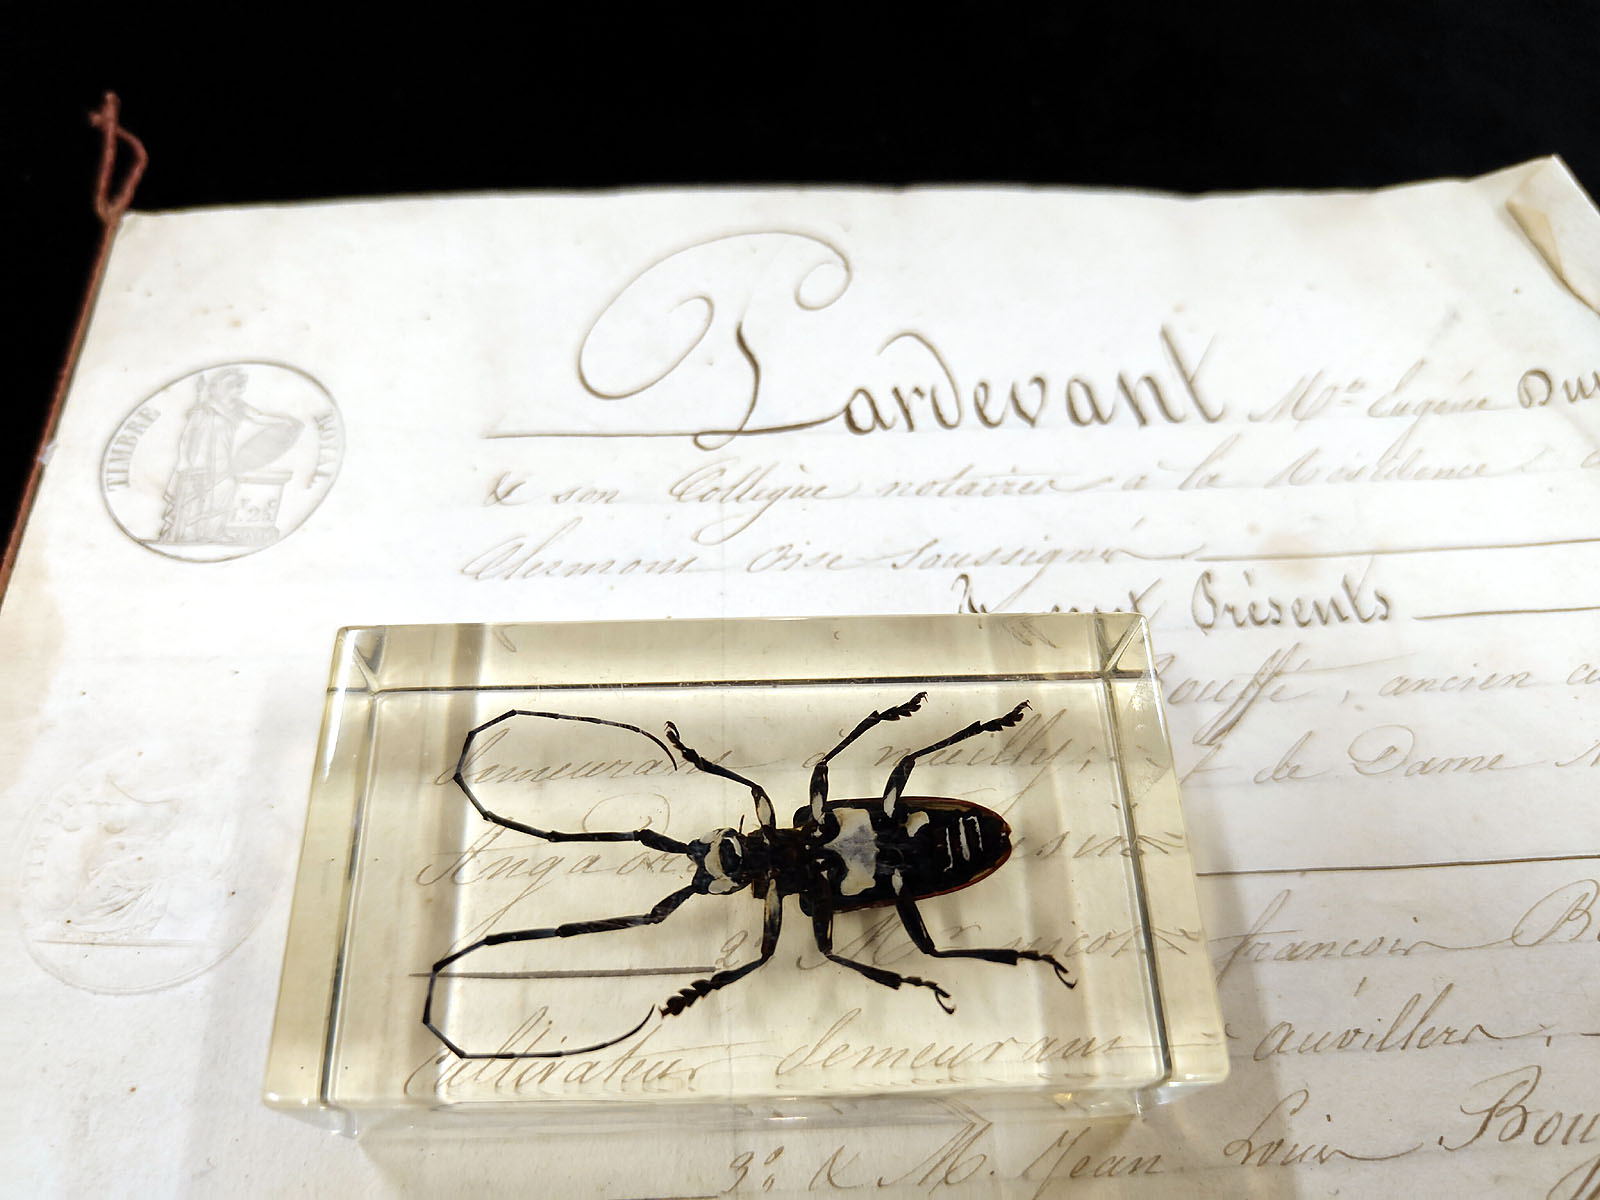 TIMBRE ROYAL
1 F. 25
Pardevant Mtre Eugène Du
& son Collègue notaires à la Résidence
Clermont Oise soussignés
Présents
Bouffé, ancien
demeurant à neuilly, de Dame
Ang
2° Mr nicolas françois B
Cultivateur demeurant auvillers,
3° & M. Jean Louis Bou